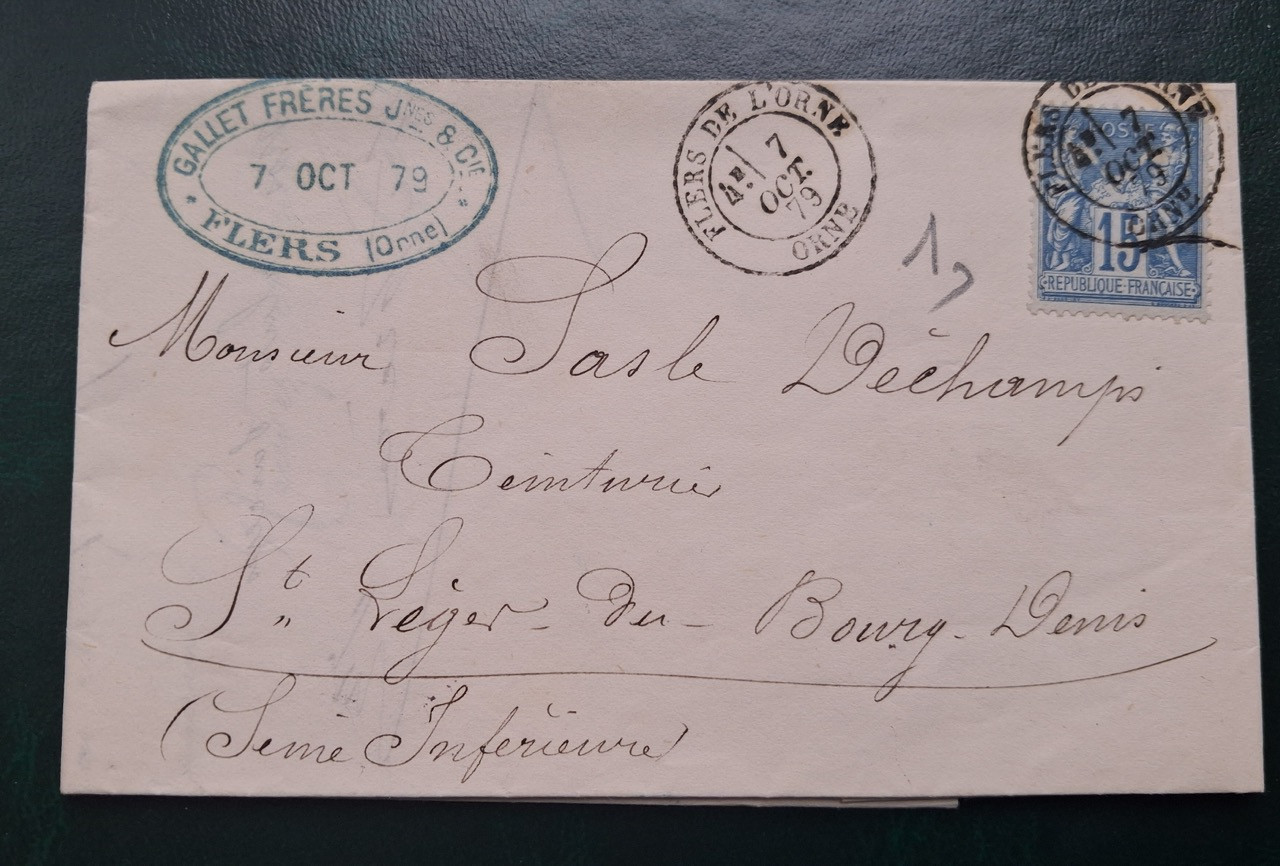 GALLET FRÈRES JNES & CIE
7 OCT 79
FLERS (Orne)
FLERS DE L'ORNE
7
OCT.
79
ORNE
FLERS DE L'ORNE
7
OCT.
79
ORNE
POSTES
15
REPUBLIQUE FRANÇAISE
Monsieur Sasle Déchamps
Teinturier
St. Léger-du-Bourg-Denis
(Seine Inférieure)